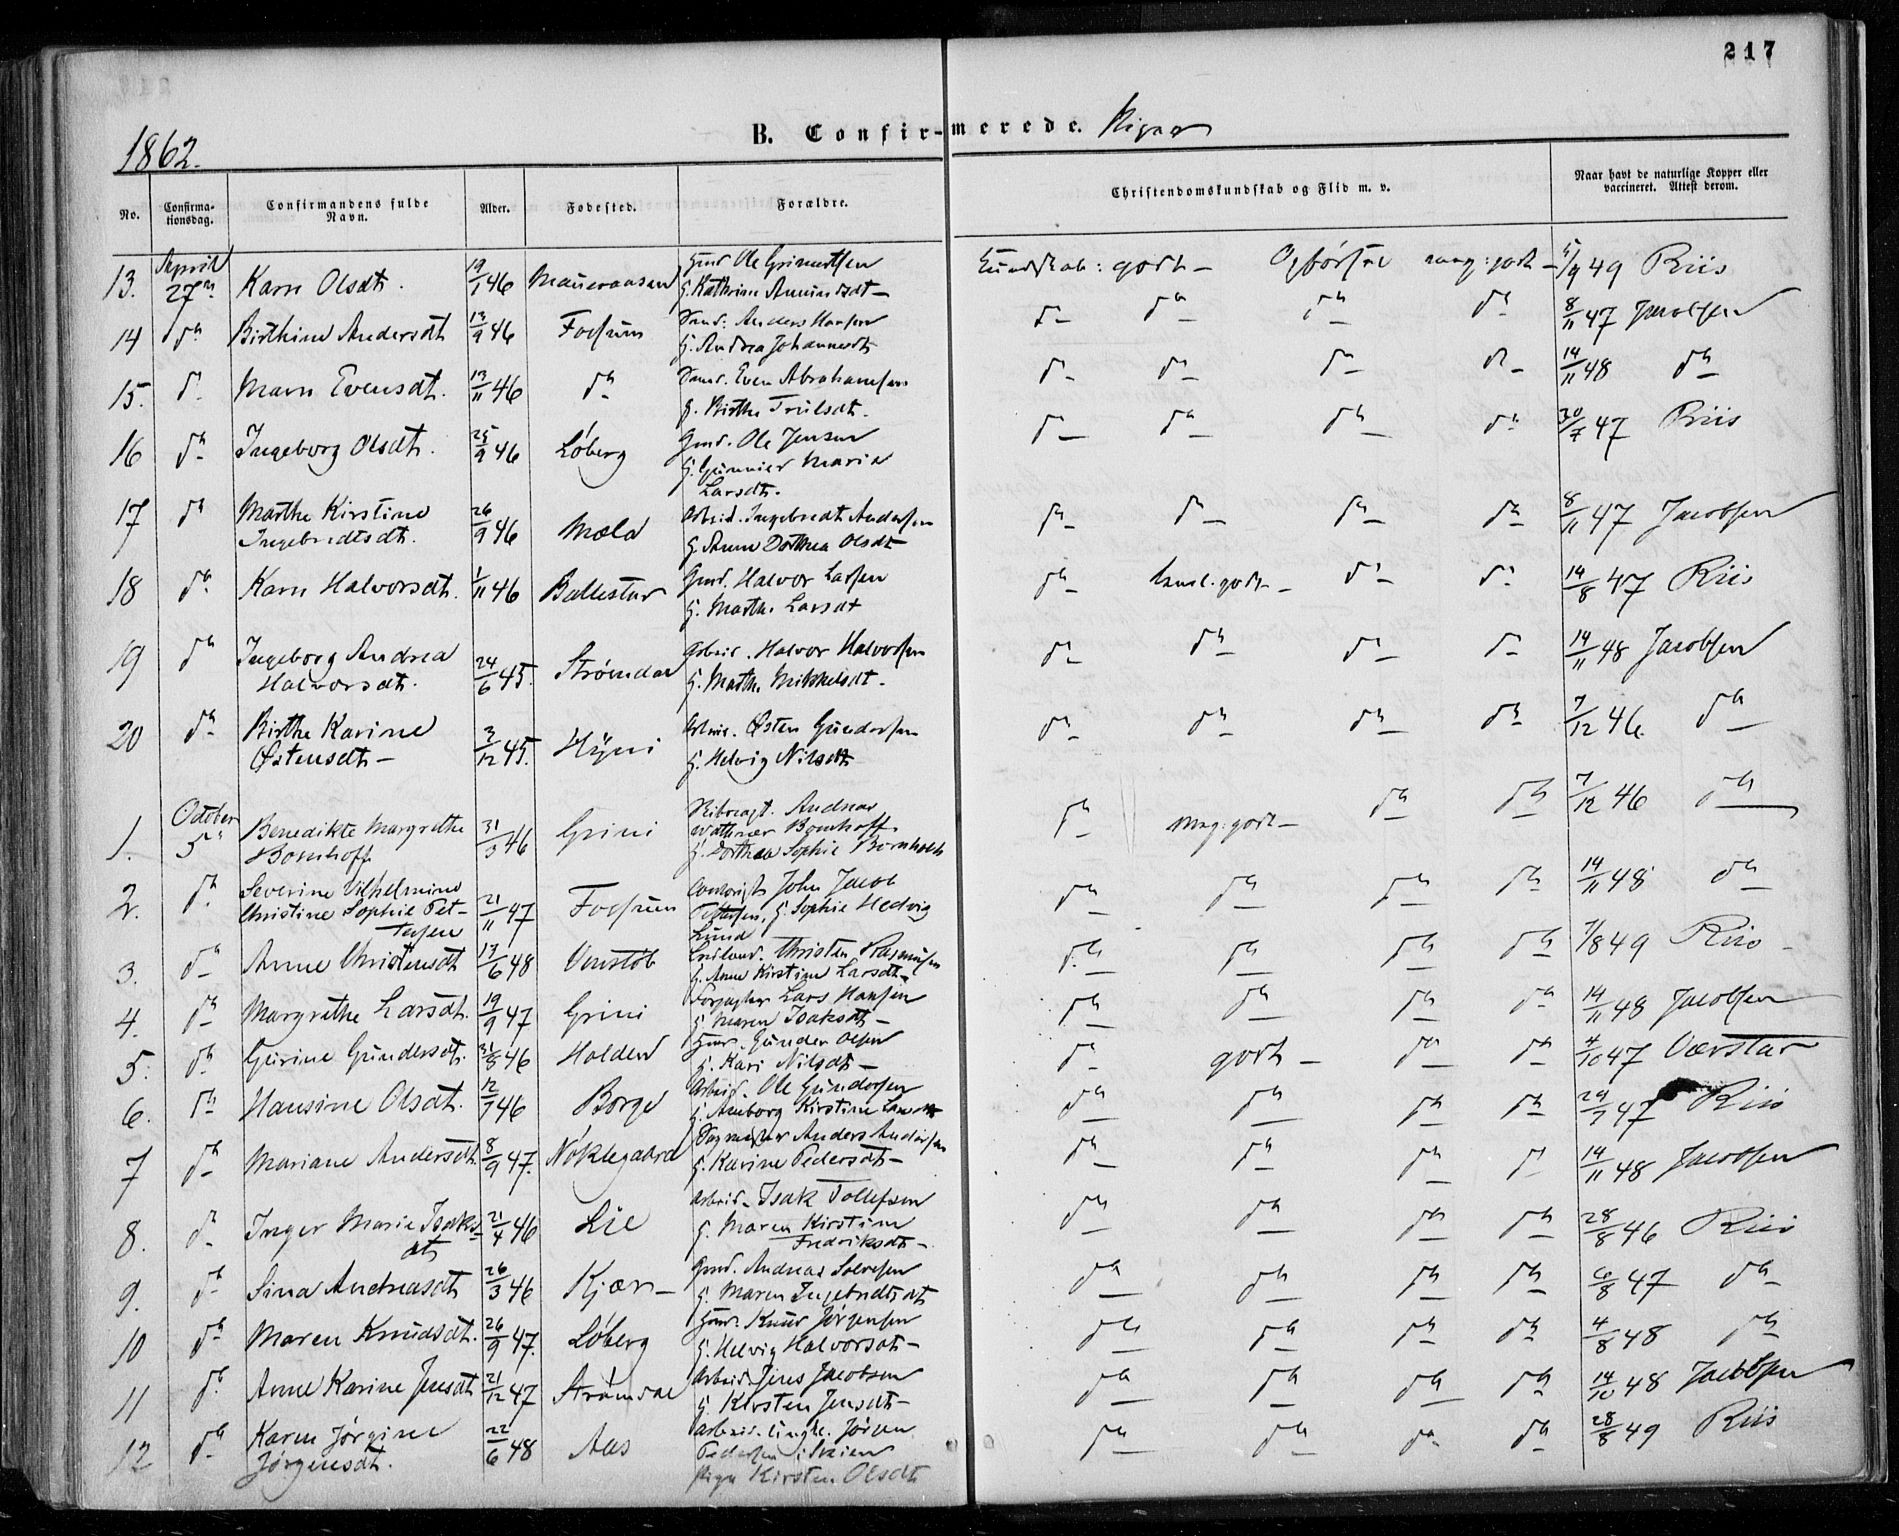 217
B. Confirmerede. Piger
1862.
No. Confirmationsdag. Confirmandens fulde Navn. Alder. Fødested. Forældre. Christendomskundskab og Flid m. v. Naar havt de naturlige Kopper eller vaccineret. Attest derom.
13. April 27de Karn Olsdt. 19/1 46 Gmd Ole
Kundskab: godt - Opførsel mæg: godt - 5/9 49 Riis
G. Kathrine Amundsdt -
14 do Birthine Andersdt 13/9 46 Fossum Anders Hansen
do do do do 8/11 47 Jacobsen
G. Andrea Johannesdt
15. do Maren Evensdt. 13/11 46 do Even Abrahamsen
do do do do 14/11 48 do
G. Birthe Trulsdt.
16 do Ingeborg Olsdt. 25/9 46 Løberg Gmd. Ole Jensen
do do do do 30/7 47 Riis
G. Gunnier Maria
Larsdt.
17 do Marthe Kirstine Ingebredtsdt. 26/9 46 Mæla Arbeid. Ingebredt Andersen
do do do do 8/11 47 Jacobsen
G. Anne Dorthea Olsdt
18 do Karn Halvorsdt. 1/11 46 Ballestad Gmd. Halvor Larsen
do temel. godt - do do 14/8 47 Riis
G. Marthe Larsdt
19 do Ingeborg Andrea Halvorsdt. 24/6 45. Strømdal Arbeid. Halvor Halvorsen
do do do do 14/11 48 Jacobsen
G. Marthe Mikkelsdt.
20 do Birthe Karine Østensdt - 3/12 45. Hyni Arbeid. Østen Gundersen
do do do do 7/12 46. do
G. Helvig Nilsdt
1. October 5te Benedikte Margrethe Bomhoff 31/3 46 Grini Andreas
do mæg: godt - do do 7/12 46 do
Bomhoff
G. Dorthea Sophie Bornholt
2. do Severine Vilhelmine Christine Sophie Pettersen 21/11 47 Fossum John Jacob
do do do do 14/11 48 do
Pettersen, G. Sophie Hedvig
Lund
3. do Anne Christensdt 13/6 48 Venstøb Christen Rasmussen
do do do do 7/8 49 Riis
G. Anne Kirstine Larsdt.
4. do Margrethe Larsdt. 19/9 47 Grini Forpagter Lars Hansen
do do do do 14/11 48 Jacobsen
G. Maren Isaksdt -
5. do Gurine Gundersdt. 31/8 46 Holden Gmd. Gunder Olsen
do godt - do do 4/10 47 Værstad
G. Kari Nilsdt -
6. do Hansine Olsdt. 12/7 46 Borge Arbeid. Ole Gundersen
do do do do 29/7 47 Riis
G. Anborg Kirstine Larsdt
7 do Mariane Andersdt. 8/9 47. Nøklegaard Sagmester Anders Andersen
do do do do 14/11 48 Jacobsen
G. Karine Pedersdt -
8. do Inger Marie Isaksdt 21/4 46 Lie Arbeid. Isak Tollefsen
do do do do 28/8 46 Riis
G. Maren Kirstine
Fredriksdt -
9. do Sina Andreasdt 26/3 46 Kjær - Gmd. Andreas Solvesen
do do do do 6/8 47 do
G. Maren Ingebredtsdt
10 do Maren Knudsdt. 26/9 47. Løberg Gmd. Knud Jørgensen
do do do do 4/8 48 do
G. Helvig Halvorsdt -
11 do Anne Karine Jensdt 21/12 47 Strømdal Arbeid. Jens Jacobsen
do do do do 14/10 48 Jacobsen
G. Kirsten Jensdt -
12 do Karen Jørgine Jørgensdt. 22/6 48 Aas Arbeid. Ungk. Jørgen
do do do do 28/8 49 Riis
Pedersen
Pige Kirsten Olsdt